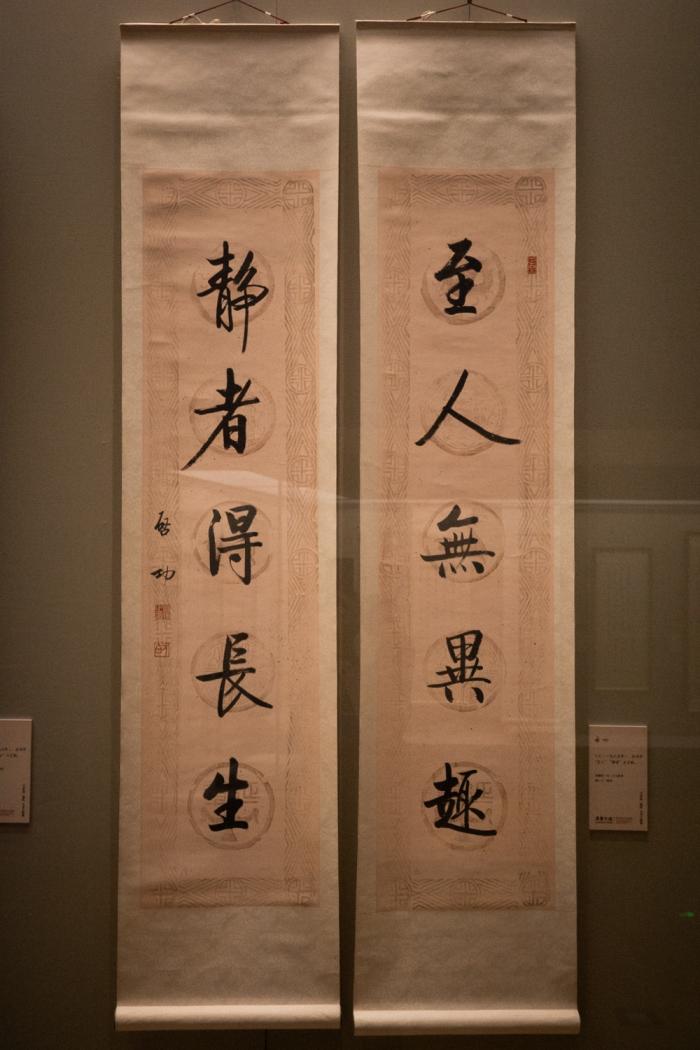 至人無異趣
静者得長生
啓功